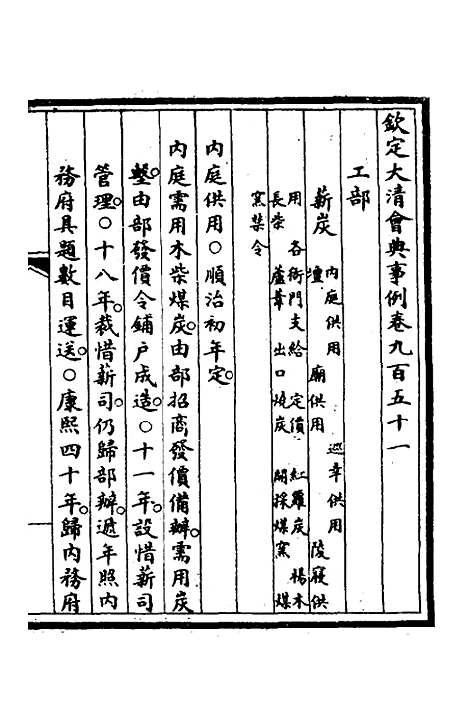 欽定大清會典事例卷九百五十一
工部
薪炭 内庭供用 巡幸供用
壇 廟供用 陵寢供
用 各衙門支給 定價 紅羅炭 楊木
長柴 蘆葦 出口燒炭 開採煤窯 煤
窯禁令
内庭供用○順治初年定。
内庭需用木柴煤炭。由部招商發價備辦。需用炭
墼。由部發價令鋪户成造。○十一年。設惜薪司
管理。○十八年。裁惜薪司。仍歸部辦。遞年照内
務府具題數目運送。○康熙四十年。歸内務府